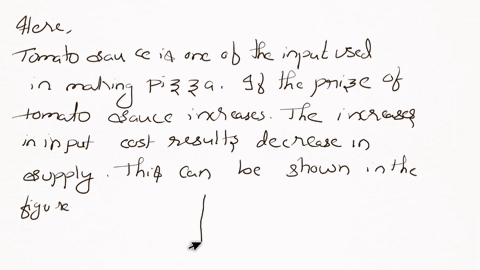 Here,
Tomato sauce is one of the input used
in making pizza. If the prize of
tomato sauce increases. The increases
in input cost results decrease in
supply. This can be shown in the
figure